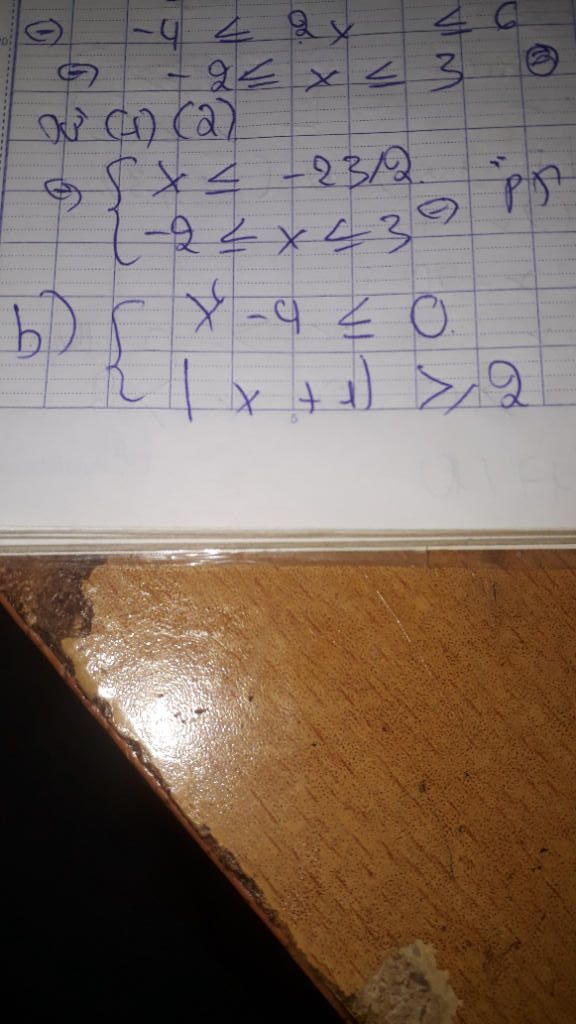 ⇔ -4 ≤ 2x ≤ 6
⇔ -2 ≤ x ≤ 3 (2)
(1) (2)
⇔ { x ≤ -23/2
-2 ≤ x ≤ 3 ⇔
b) { x² - 4 ≤ 0
|x + 1| ≥ 2